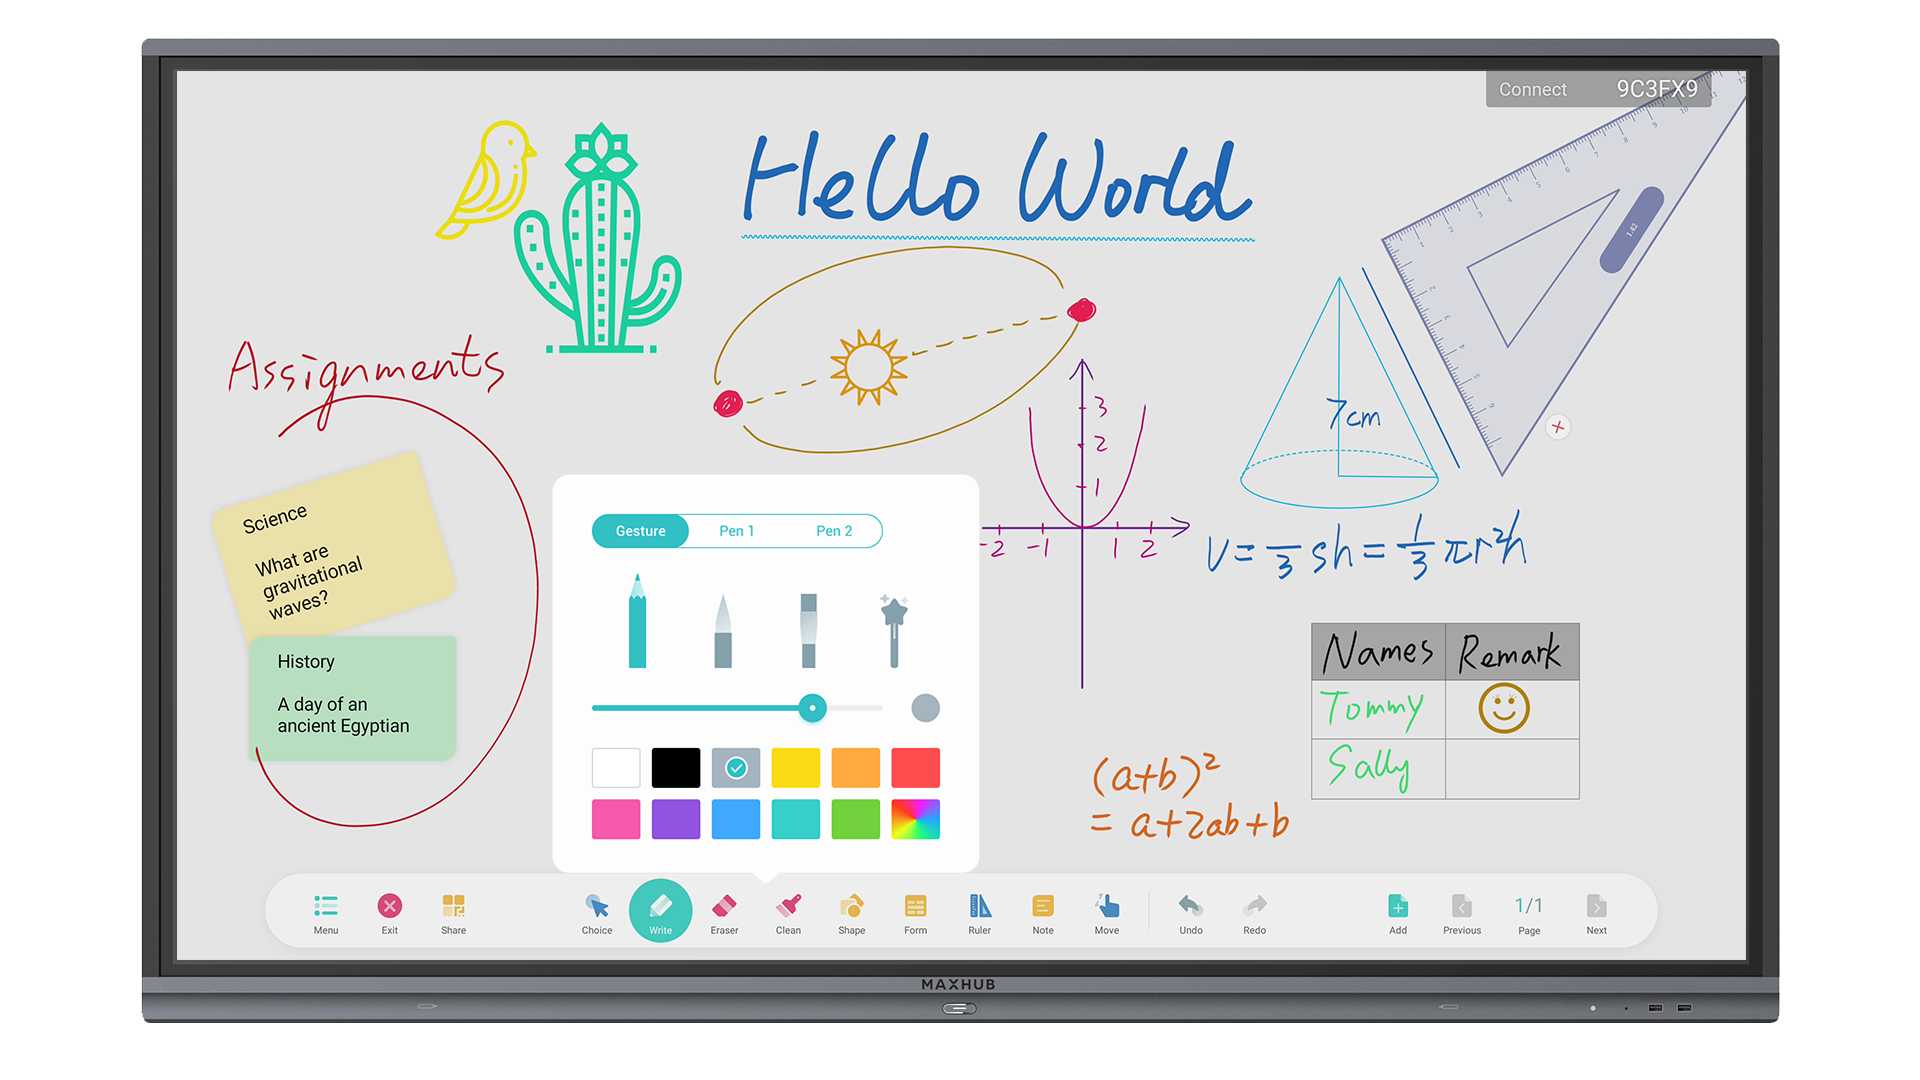 Connect 9C3FX9
Hello World
1.42
Assignments
Science
What are
gravitational
waves?
History
A day of an
ancient Egyptian
Gesture Pen 1 Pen 2
3
2
1
-2 -1 1 2
7cm
V = — 3 sh = 1/3 πr²h
Names Remark
Tommy
Sally
(a+b)²
= a+2ab+b
Menu Exit Share Choice Write Eraser Clean Shape Form Ruler Note Move Undo Redo Add Previous 1/1 Page Next
MAXHUB